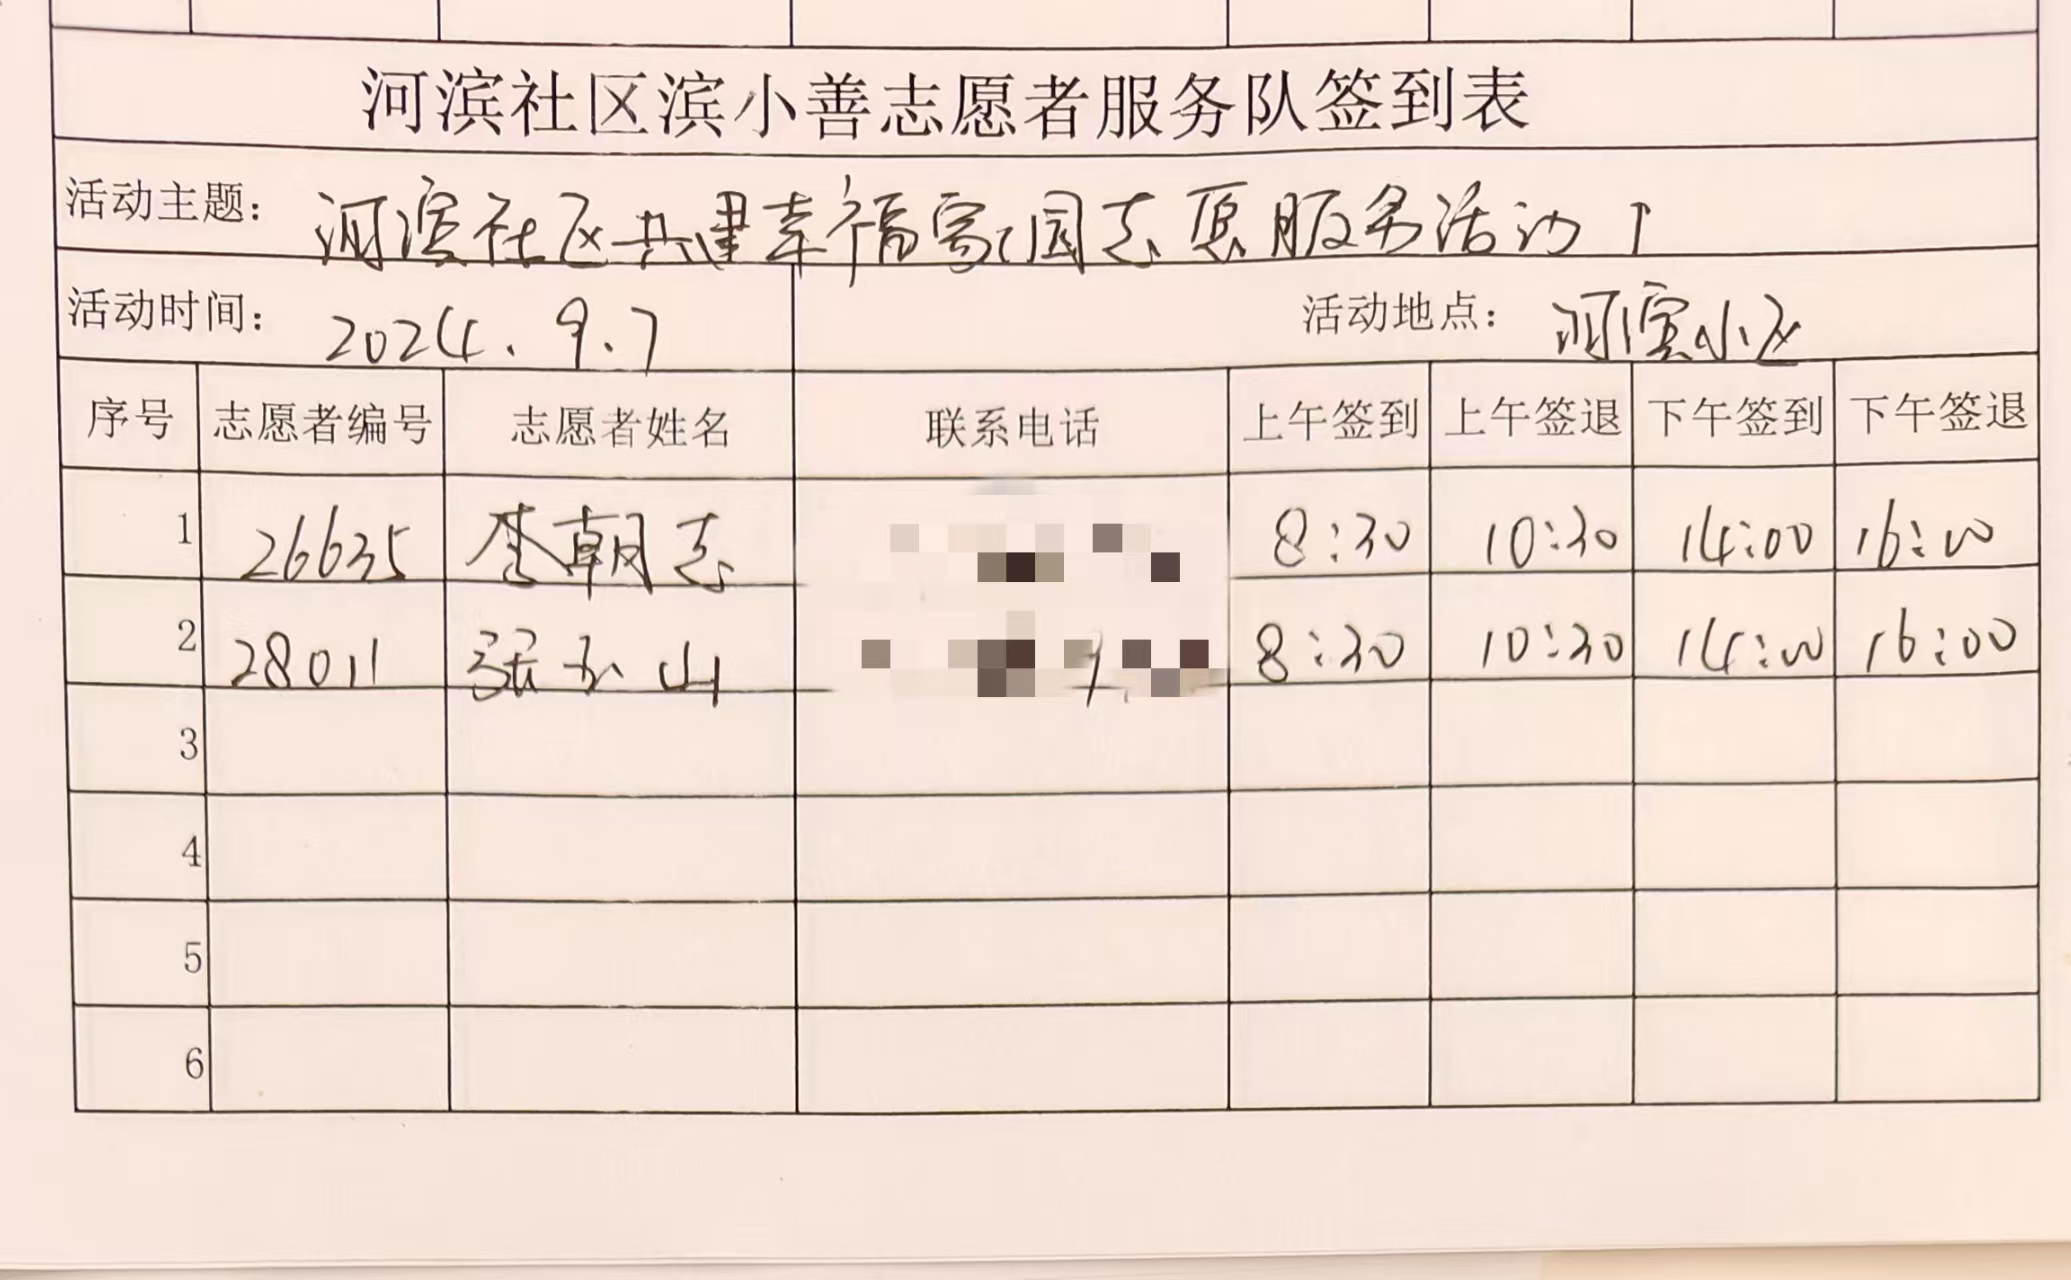 河滨社区滨小善志愿者服务队签到表
活动主题： 河滨社区共建幸福家园志愿服务活动
活动时间： 2024.9.7 活动地点： 河滨小区
序号 志愿者编号 志愿者姓名 联系电话 上午签到 上午签退 下午签到 下午签退
1 26635 李朝志 8:30 10:30 14:00 16:00
2 28011 张玉山 8:30 10:30 14:00 16:00
3
4
5
6